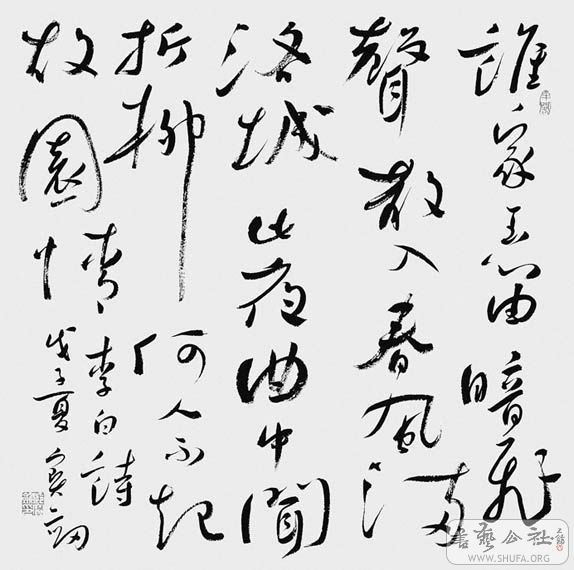 誰家玉笛暗飛
聲散入春風滿
洛城此夜曲中聞
折柳何人不起
故園情
李白詩
戊子夏
書藝公社
WWW.SHUFA.ORG